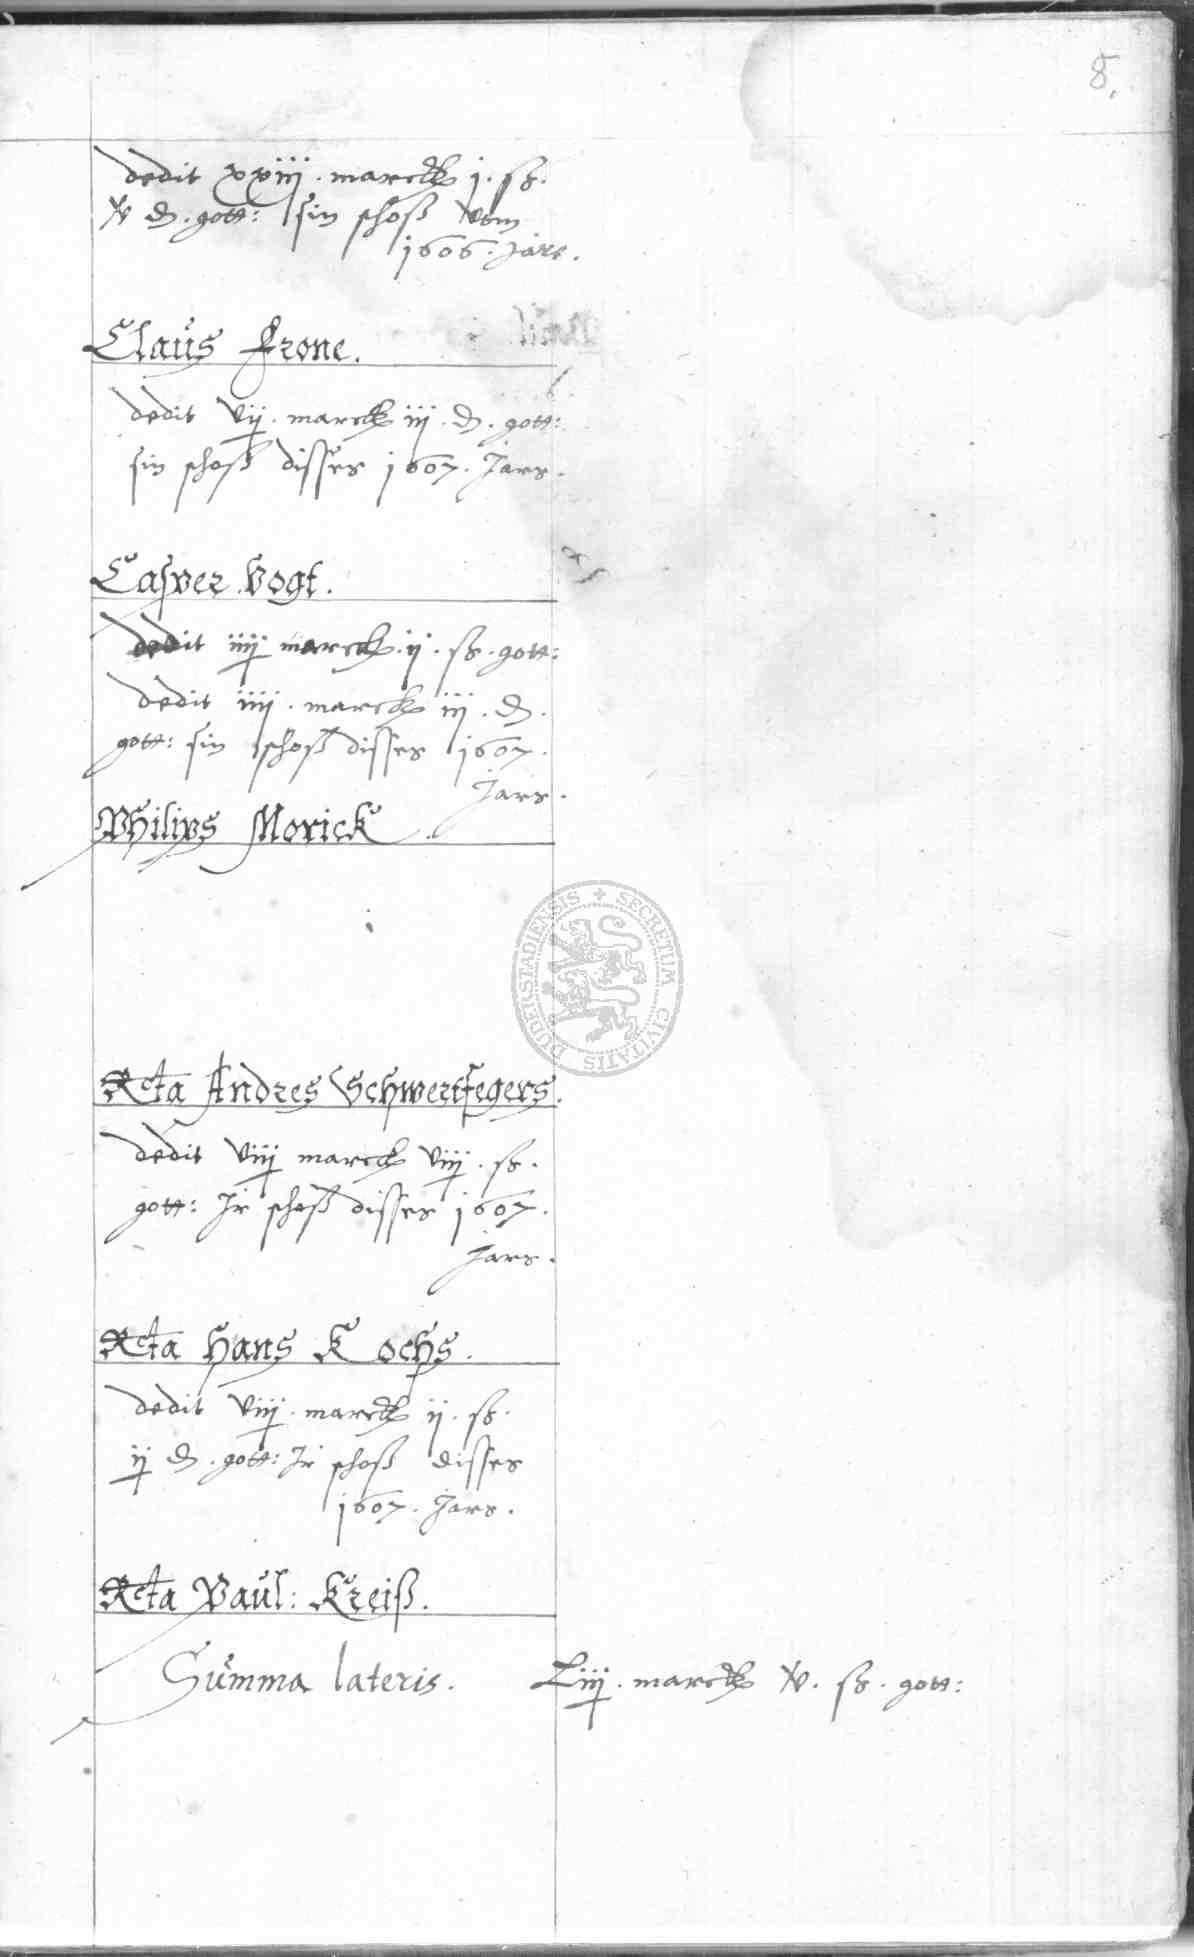 8.
dedit xxiij. marck j. ß.
v ₰. gott: sin schoß vom
1606. Jare.
Claus Frone.
dedit vij. marck iij. ₰. gott:
sin schoß disses 1607. Jars.
Casper Vogt.
dedit iiij marck. ij. ß. gott:
dedit iiij. marck iij. ₰.
gott: sin schoß disses 1607.
Jars.
Philips Morick
SECRETUM CIVITATIS DUDERSTADIENSIS
Rcta Andres Schwertfegers.
dedit viiij marck viiij. ß.
gott: Jr schoß disses 1607.
Jars.
Rcta Hans Kochs.
dedit viiij. marck ij. ß.
ij ₰. gott: Jr schoß disses
1607. Jars.
Rcta Paul: Kreiß.
Summa lateris. Liiij. marck v. ß. gott: